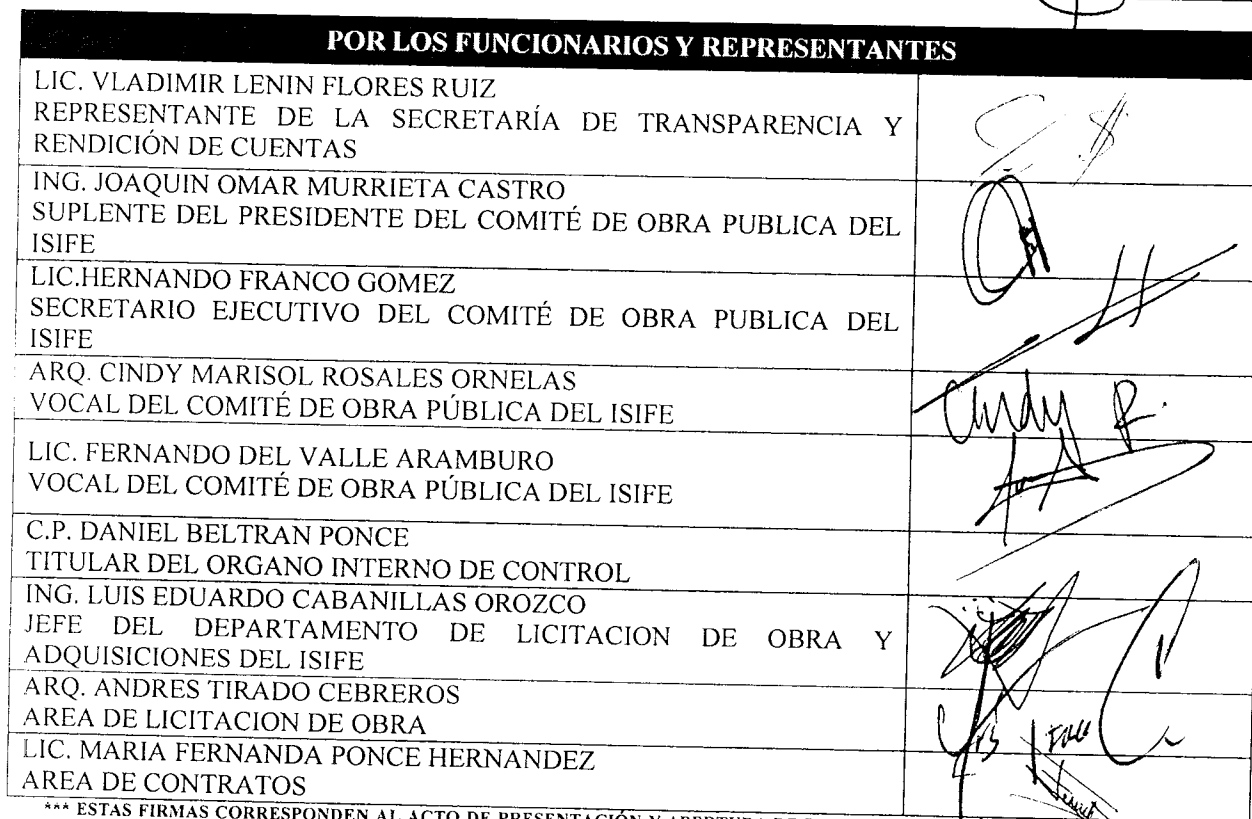 POR LOS FUNCIONARIOS Y REPRESENTANTES
LIC. VLADIMIR LENIN FLORES RUIZ
REPRESENTANTE DE LA SECRETARÍA DE TRANSPARENCIA Y
RENDICIÓN DE CUENTAS
ING. JOAQUIN OMAR MURRIETA CASTRO
SUPLENTE DEL PRESIDENTE DEL COMITÉ DE OBRA PUBLICA DEL
ISIFE
LIC.HERNANDO FRANCO GOMEZ
SECRETARIO EJECUTIVO DEL COMITÉ DE OBRA PUBLICA DEL
ISIFE
ARQ. CINDY MARISOL ROSALES ORNELAS
VOCAL DEL COMITÉ DE OBRA PÚBLICA DEL ISIFE
Cindy R.
LIC. FERNANDO DEL VALLE ARAMBURO
VOCAL DEL COMITÉ DE OBRA PÚBLICA DEL ISIFE
C.P. DANIEL BELTRAN PONCE
TITULAR DEL ORGANO INTERNO DE CONTROL
ING. LUIS EDUARDO CABANILLAS OROZCO
JEFE DEL DEPARTAMENTO DE LICITACION DE OBRA Y
ADQUISICIONES DEL ISIFE
ARQ. ANDRES TIRADO CEBREROS
AREA DE LICITACION DE OBRA
LIC. MARIA FERNANDA PONCE HERNANDEZ
AREA DE CONTRATOS
*** ESTAS FIRMAS CORRESPONDEN AL ACTO DE PRESENTACIÓN Y APERTURA